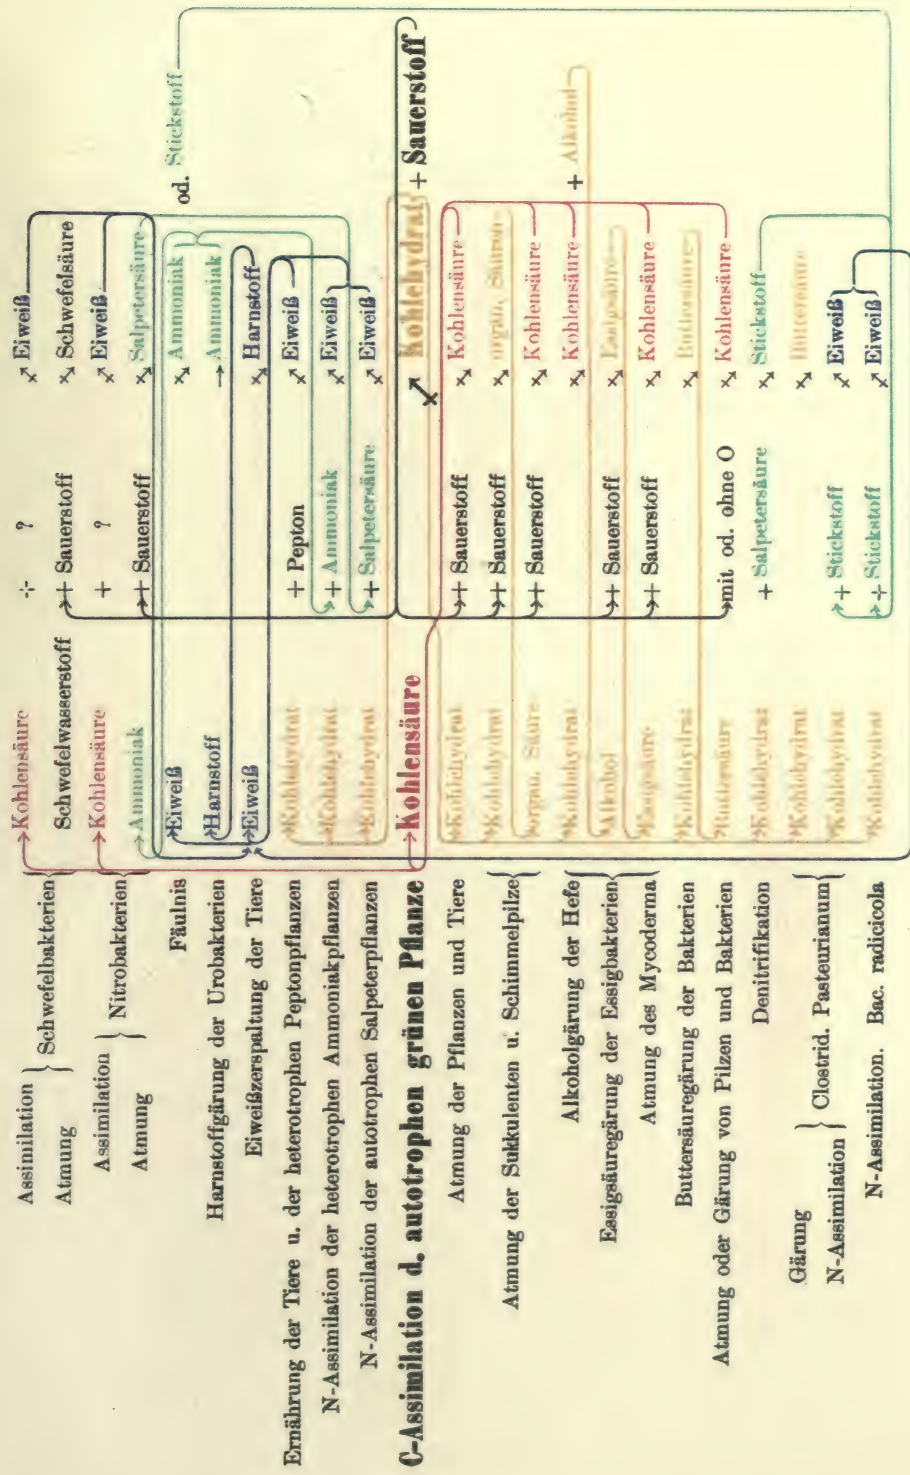 Assimilation } Schwefelbakterien Kohlensäure ÷ ? Eiweiß
Atmung Schwefelwasserstoff + Sauerstoff Schwefelsäure
Assimilation } Nitrobakterien Kohlensäure + ? Eiweiß
Atmung Ammoniak + Sauerstoff Salpetersäure
od. Stickstoff
Fäulnis Eiweiß Ammoniak
Harnstoffgärung der Urobakterien Harnstoff → Ammoniak
Eiweißzerspaltung der Tiere Eiweiß Harnstoff
Ernährung der Tiere u. der heterotrophen Peptonpflanzen Kohlehydrat + Pepton Eiweiß
N-Assimilation der heterotrophen Ammoniakpflanzen Kohlehydrat + Ammoniak Eiweiß
N-Assimilation der autotrophen Salpeterpflanzen Kohlehydrat + Salpetersäure Eiweiß
C-Assimilation d. autotrophen grünen Pflanze Kohlensäure Kohlehydrat + Sauerstoff
Atmung der Pflanzen und Tiere Kohlehydrat + Sauerstoff Kohlensäure
Atmung der Sukkulenten u. Schimmelpilze } Kohlehydrat + Sauerstoff organ. Säuren
organ. Säure + Sauerstoff Kohlensäure
Alkoholgärung der Hefe Kohlehydrat Kohlensäure + Alkohol
Essigsäuregärung der Essigbakterien } Alkohol + Sauerstoff Essigsäure
Atmung des Mycoderma Essigsäure + Sauerstoff Kohlensäure
Buttersäuregärung der Bakterien Kohlehydrat Buttersäure
Atmung oder Gärung von Pilzen und Bakterien Buttersäure mit od. ohne O Kohlensäure
Denitrifikation Kohlehydrat + Salpetersäure Stickstoff
Gärung } Clostrid. Pasteurianum { Kohlehydrat Buttersäure
N-Assimilation Kohlehydrat + Stickstoff Eiweiß
N-Assimilation. Bac. radicicola Kohlehydrat ÷ Stickstoff Eiweiß